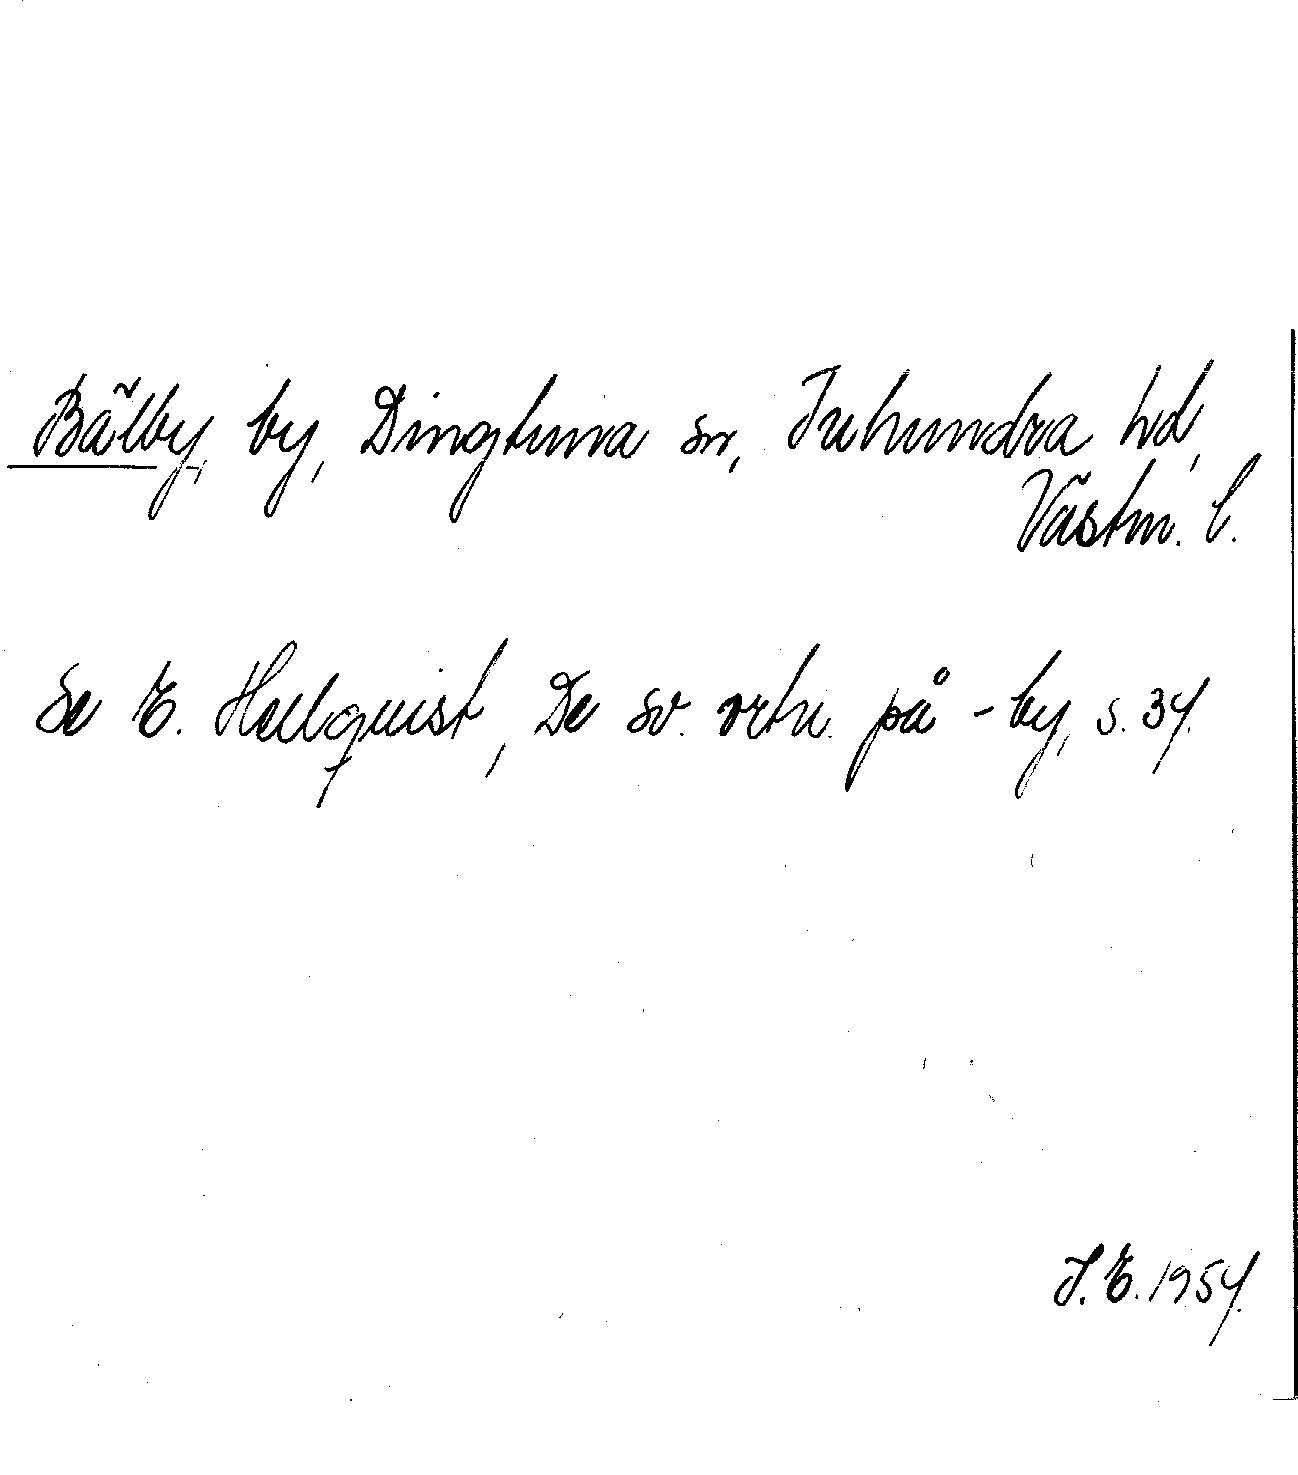 Bälby, by, Dingtuna sn, Tuhundra hd,
Västm. l.
Se E. Hellquist, De sv. ortn. på -by, s. 34.
J. E. 1954.